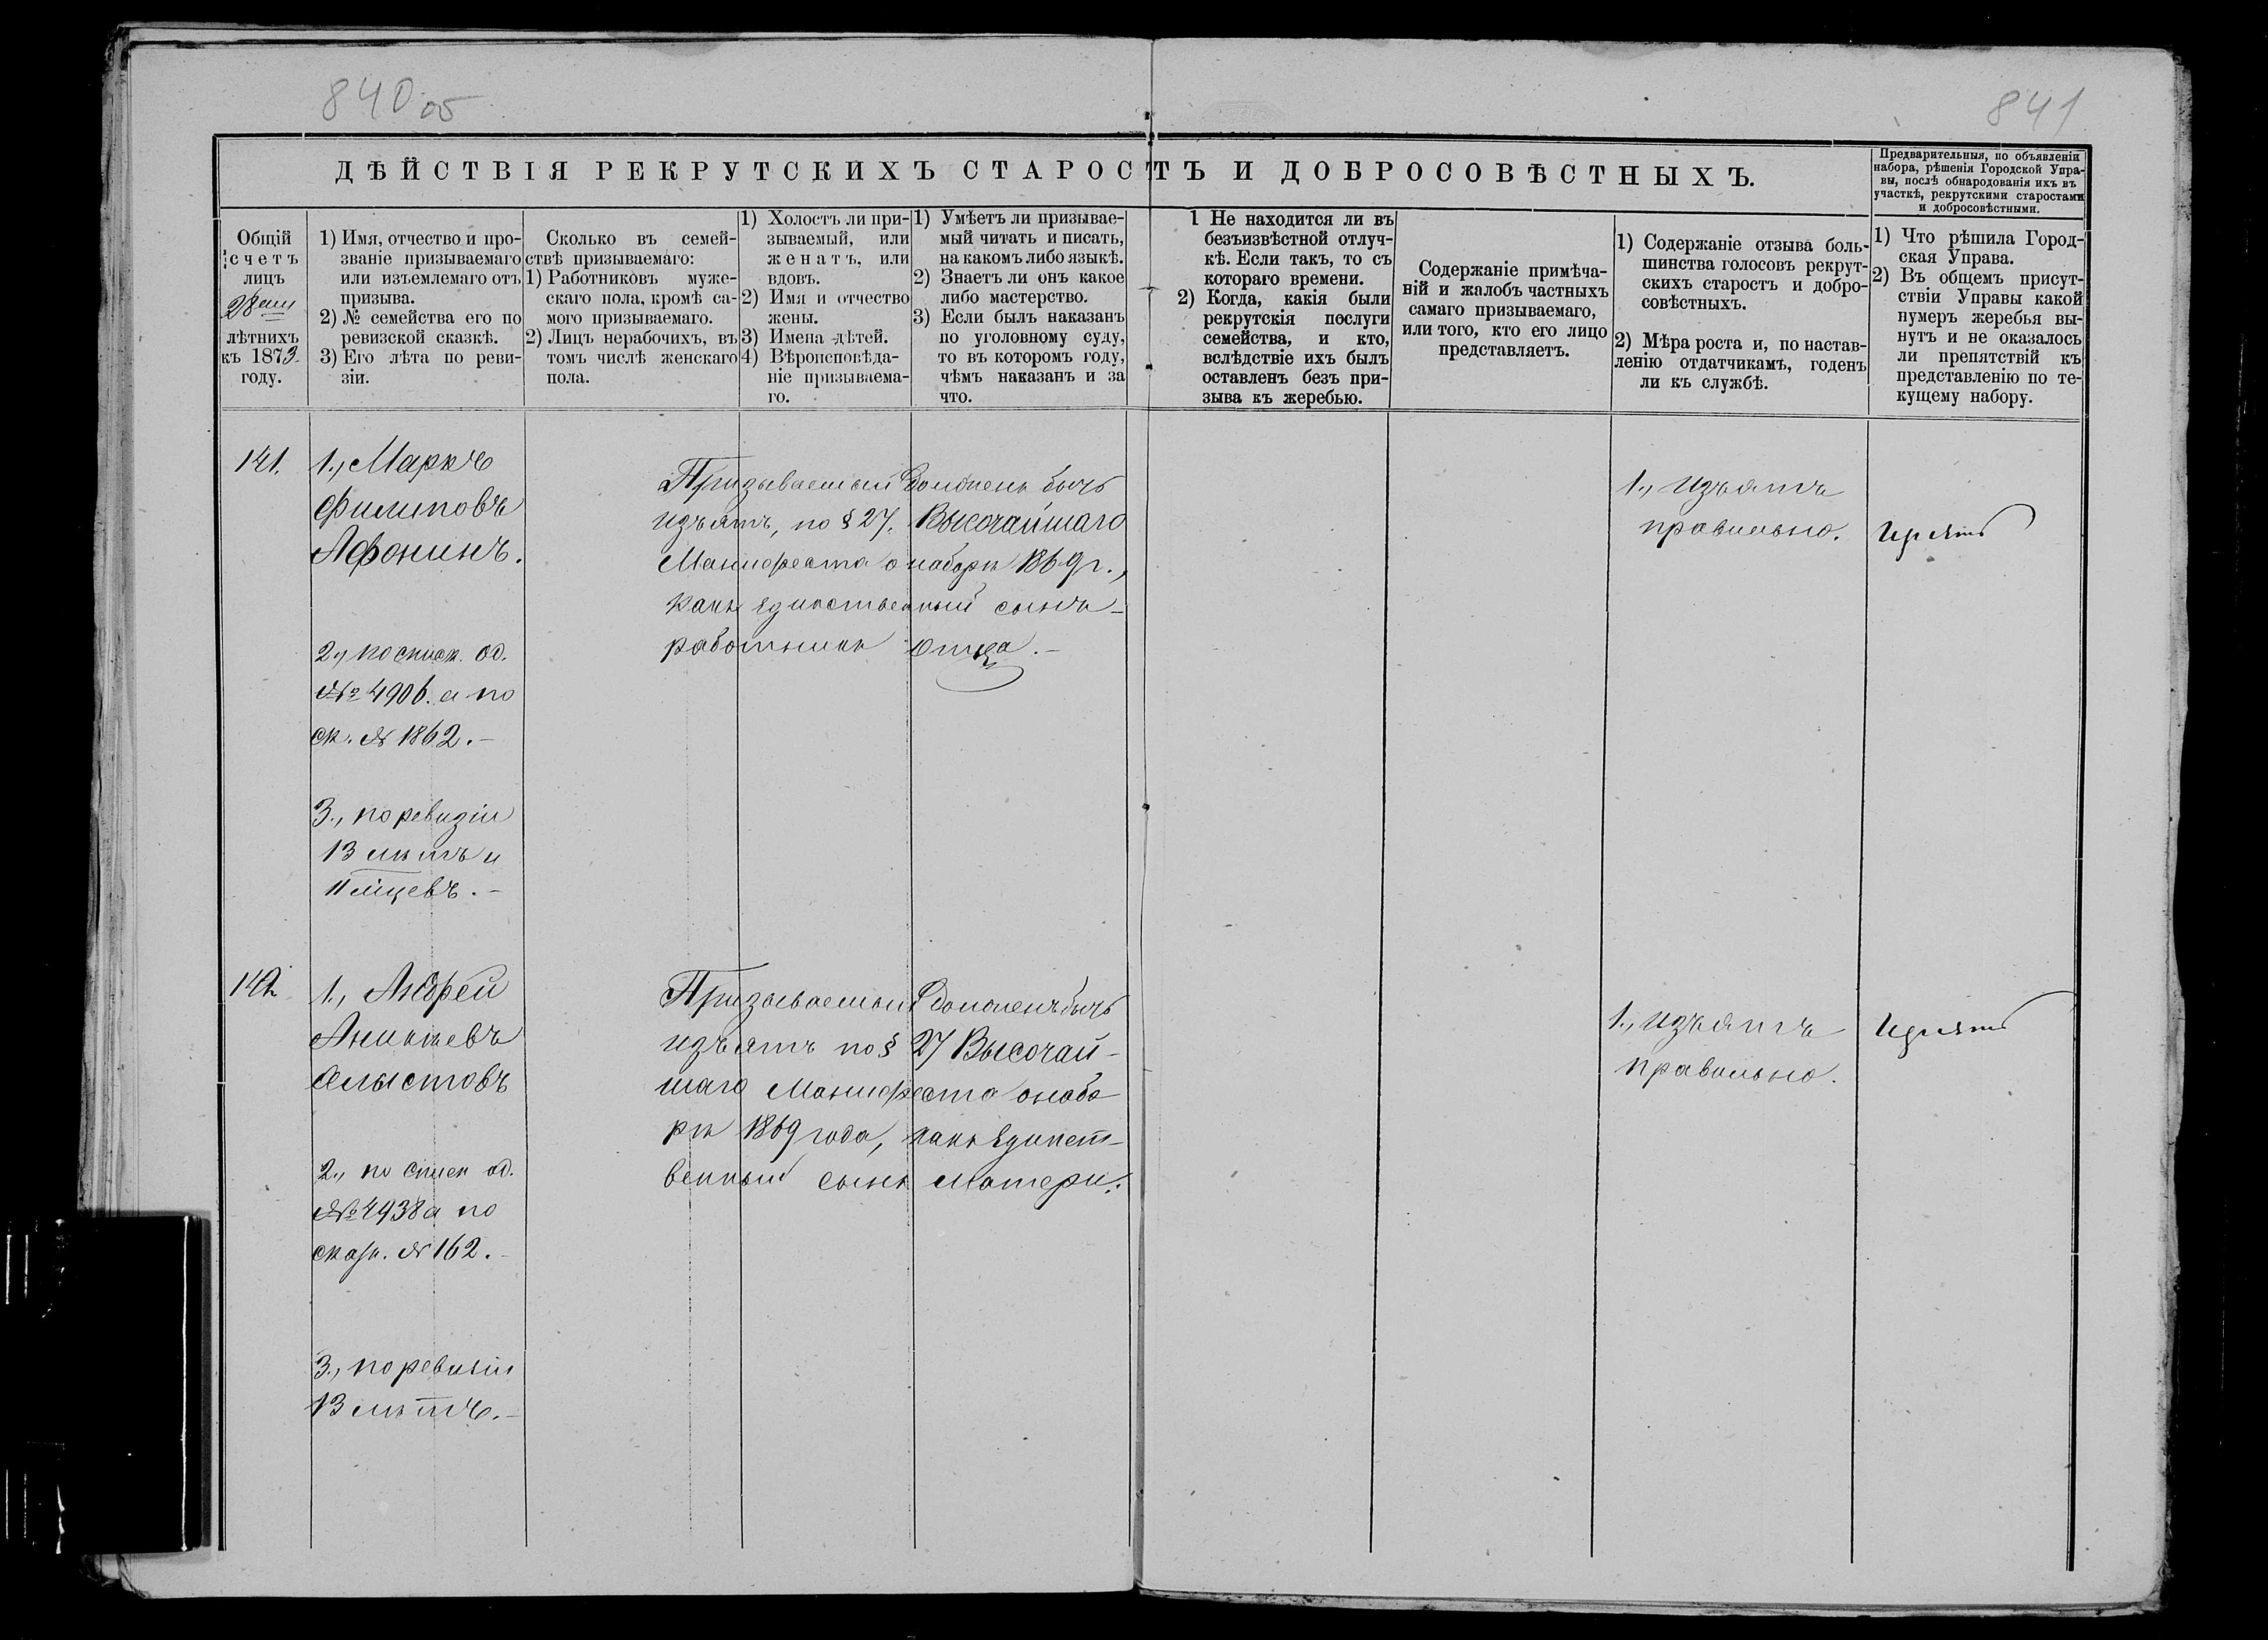 840 об
841
ДѢЙСТВІЯ РЕКРУТСКИХЪ СТАРОСТЪ И ДОБРОСОВѢСТНЫХЪ.
Предварительныя, по объявленіи
набора, рѣшенія Городской Упра-
вы, послѣ обнародованія ихъ въ
участкѣ, рекрутскими старостами
и добросовѣстными.
Общій
счетъ
лицъ
28 ми
лѣтнихъ
къ 1873
году.
1) Имя, отчество и про-
званіе призываемаго
или изъемлемаго отъ
призыва.
2) № семейства его по
ревизской сказкѣ.
3) Его лѣта по реви-
зіи.
Сколько въ семей-
ствѣ призываемаго:
1) Работниковъ муже-
скаго пола, кромѣ са-
мого призываемаго.
2) Лицъ нерабочихъ, въ
томъ числѣ женскаго
пола.
1) Холостъ ли при-
зываемый, или
женатъ, или
вдовъ.
2) Имя и отчество
жены.
3) Имена дѣтей.
4) Вѣроисповѣда-
ніе призываема-
го.
1) Умѣетъ ли призывае-
мый читать и писать,
на какомъ либо языкѣ.
2) Знаетъ ли онъ какое
либо мастерство.
3) Если былъ наказанъ
по уголовному суду,
то въ которомъ году,
чѣмъ наказанъ и за
что.
1 Не находится ли въ
безъизвѣстной отлуч-
кѣ. Если такъ, то съ
котораго времени.
2) Когда, какія были
рекрутскія послуги
семейства, и кто,
вслѣдствіе ихъ былъ
оставленъ безъ при-
зыва къ жеребью.
Содержаніе примѣча-
ній и жалобъ частныхъ
самаго призываемаго,
или того, кто его лицо
представляетъ.
1) Содержаніе отзыва боль-
шинства голосовъ рекрут-
скихъ старостъ и добро-
совѣстныхъ.
2) Мѣра роста и, по настав-
ленію отдатчикамъ, годенъ
ли къ службѣ.
1) Что рѣшила Город-
ская Управа.
2) Въ общемъ присут-
ствіи Управы какой
нумеръ жеребья вы-
нутъ и не оказалось
ли препятствій къ
представленію по те-
кущему набору.
141.
1., Маркъ
Филиповъ
Афонинъ.
2., по списк. од.
№ 4906. а по
ск. № 1862.—
3., по ревизіи
13 лѣтъ и
11 мцевъ.—
Призываемый долженъ быть
изъятъ, по § 27. Высочайшаго
Манифеста о наборѣ 1869 г.,
какъ единственный сынъ-
работникъ отца.—
1., Изъятъ
правильно.
Изъятъ
142
1., Андрей
Аникѣевъ
Алыстовъ
2., по списк од.
№ 4938 а по
сказк. № 162.—
3., по ревизіи
13 лѣтъ.—
Призываемый долженъ быть
изъятъ по § 27 Высочай-
шаго Манифеста о набо
рѣ 1869 года, какъ единст-
венный сынъ матери.
1., Изъятъ
правильно.
Изъятъ